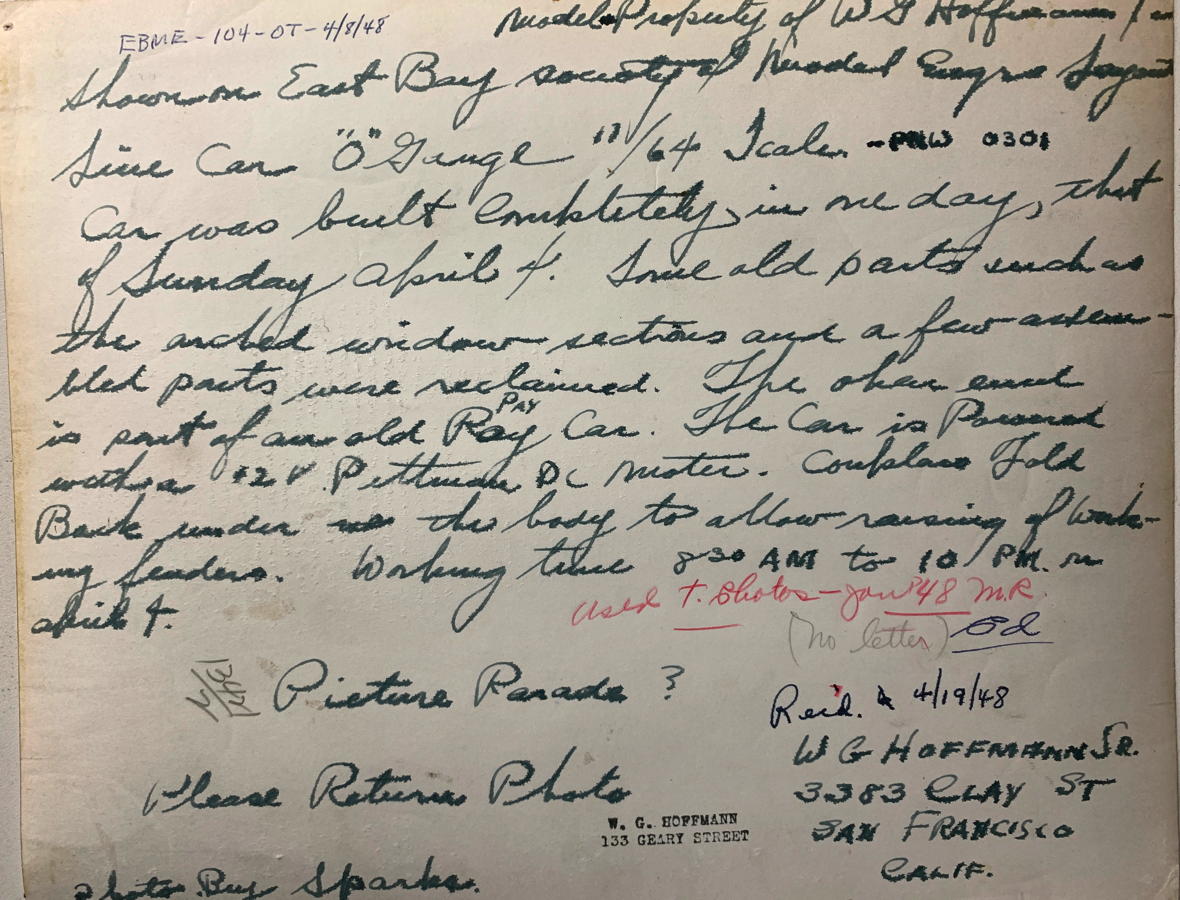 EBME-104-OT-4/8/48
Model Property of W G Hoffmann
Shown on East Bay society of Muodel Engrs Layout
Line Car "O" Guage 17/64 Scale. - PNW 0301
Car was built Compktetely, in one day, that
of Sunday April 4. Some old parts such as
the arched window sections and a few assem-
bled parts were reclaimed. The open end
is part of an old Ray Car. The Car is Powered
PAY
with a 12 V Pittman DC Moter. Couplers Fold
Back under the body to allow raising of Work-
ing fenders. Working time 8 30 AM to 10 PM. on
April 4.
Used T. Photos - Jan '48 M.R.
(No letter) Ed
Picture Parade ?
Rec'd. 4/19/48
W G HOFFMANN SR.
3383 CLAY ST
SAN FRANCISCO
CALIF.
Please Return Photo
W. G. HOFFMANN
133 GEARY STREET
Photo By Sparks.